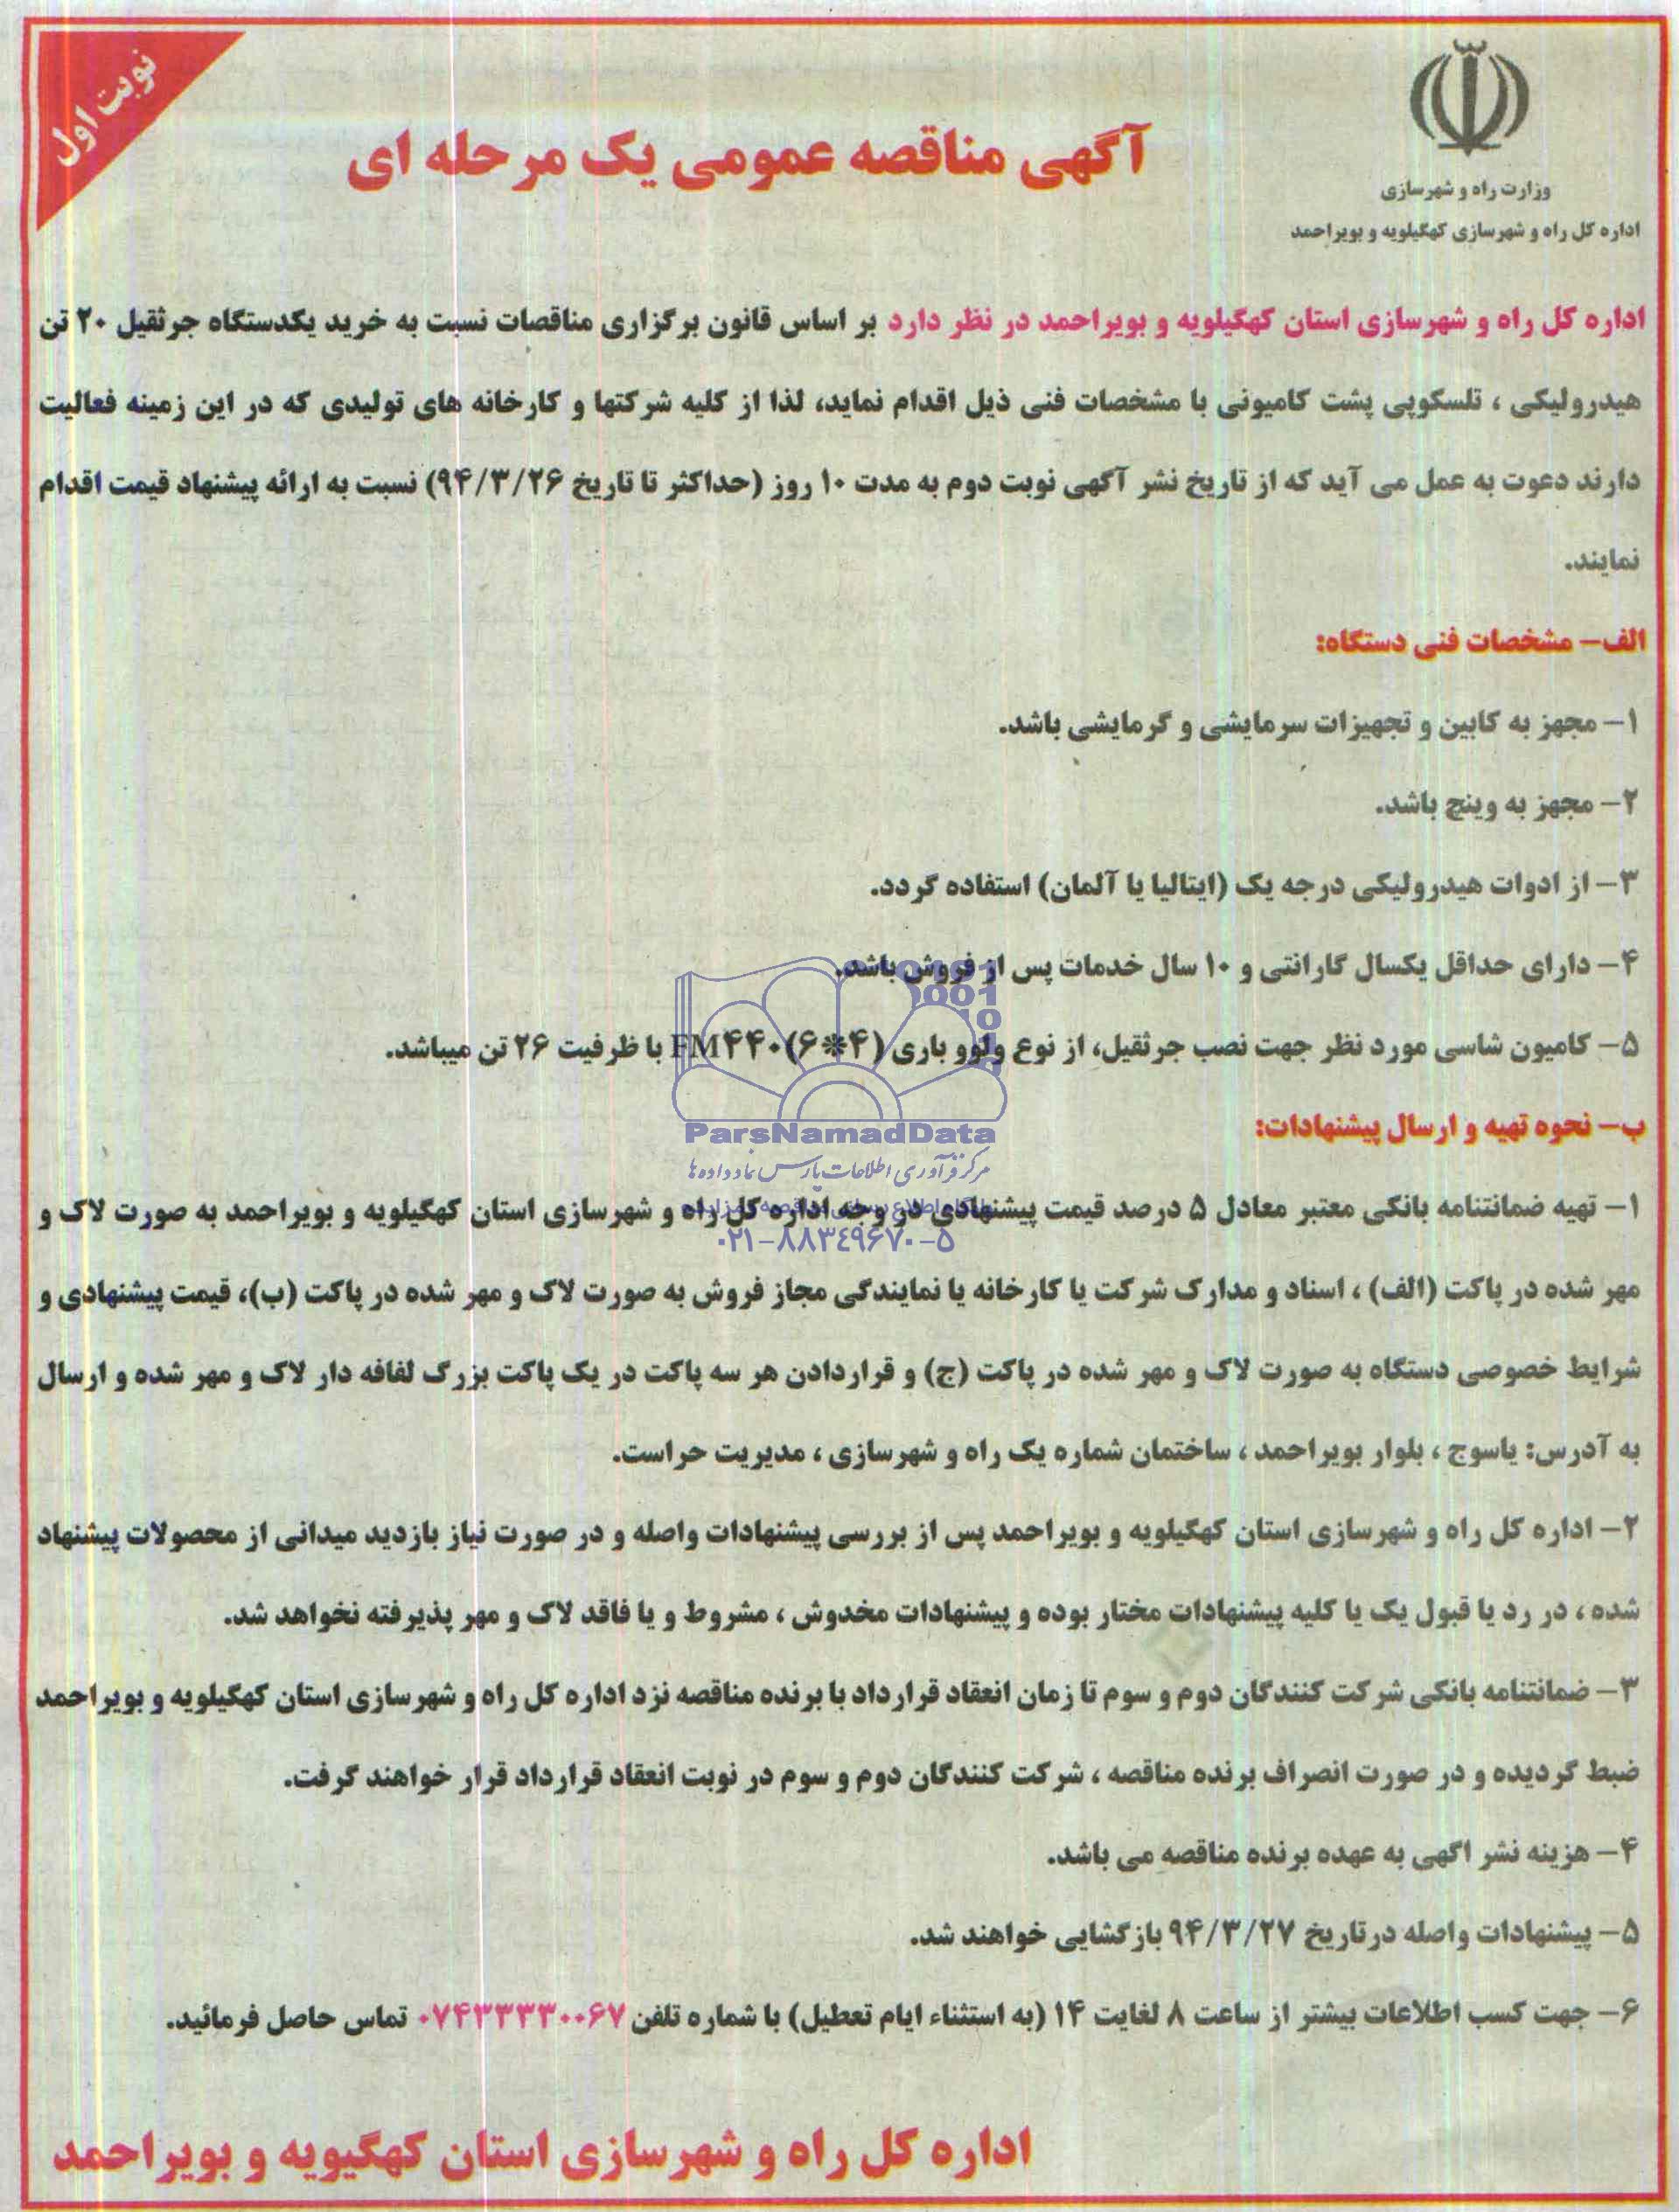 نوبت اول
وزارت راه و شهرسازی
اداره کل راه و شهرسازی کهگیلویه و بویراحمد
آگهی مناقصه عمومی یک مرحله ای
اداره کل راه و شهرسازی استان کهگیلویه و بویراحمد در نظر دارد بر اساس قانون برگزاری مناقصات نسبت به خرید یکدستگاه جرثقیل ۲۰ تن
هیدرولیکی ، تلسکوپی پشت کامیونی با مشخصات فنی ذیل اقدام نماید، لذا از کلیه شرکتها و کارخانه های تولیدی که در این زمینه فعالیت
دارند دعوت به عمل می آید که از تاریخ نشر آگهی نوبت دوم به مدت ۱۰ روز (حداکثر تا تاریخ ۹۴/۳/۲۶) نسبت به ارائه پیشنهاد قیمت اقدام
نمایند.
الف- مشخصات فنی دستگاه:
۱- مجهز به کابین و تجهیزات سرمایشی و گرمایشی باشد.
۲- مجهز به وینچ باشد.
۳- از ادوات هیدرولیکی درجه یک (ایتالیا یا آلمان) استفاده گردد.
۴- دارای حداقل یکسال گارانتی و ۱۰ سال خدمات پس از فروش باشد.
۵- کامیون شاسی مورد نظر جهت نصب جرثقیل، از نوع ولوو باری (۴*۶) FM۴۴۰ با ظرفیت ۲۶ تن میباشد.
ParsNamadData
مرکز فرآوری اطلاعات پارس نماد داده ها
۰۲۱-۸۸۳۴۹۶۷۰-۵
ب- نحوه تهیه و ارسال پیشنهادات:
۱- تهیه ضمانتنامه بانکی معتبر معادل ۵ درصد قیمت پیشنهادی در وجه اداره کل راه و شهرسازی استان کهگیلویه و بویراحمد به صورت لاک و
مهر شده در پاکت (الف) ، اسناد و مدارک شرکت یا کارخانه یا نمایندگی مجاز فروش به صورت لاک و مهر شده در پاکت (ب)، قیمت پیشنهادی و
شرایط خصوصی دستگاه به صورت لاک و مهر شده در پاکت (ج) و قراردادن هر سه پاکت در یک پاکت بزرگ لفافه دار لاک و مهر شده و ارسال
به آدرس: یاسوج ، بلوار بویراحمد ، ساختمان شماره یک راه و شهرسازی ، مدیریت حراست.
۲- اداره کل راه و شهرسازی استان کهگیلویه و بویراحمد پس از بررسی پیشنهادات واصله و در صورت نیاز بازدید میدانی از محصولات پیشنهاد
شده ، در رد یا قبول یک یا کلیه پیشنهادات مختار بوده و پیشنهادات مخدوش ، مشروط و یا فاقد لاک و مهر پذیرفته نخواهد شد.
۳- ضمانتنامه بانکی شرکت کنندگان دوم و سوم تا زمان انعقاد قرارداد با برنده مناقصه نزد اداره کل راه و شهرسازی استان کهگیلویه و بویراحمد
ضبط گردیده و در صورت انصراف برنده مناقصه ، شرکت کنندگان دوم و سوم در نوبت انعقاد قرارداد قرار خواهند گرفت.
۴- هزینه نشر اگهی به عهده برنده مناقصه می باشد.
۵- پیشنهادات واصله درتاریخ ۹۴/۳/۲۷ بازگشایی خواهند شد.
۶- جهت کسب اطلاعات بیشتر از ساعت ۸ لغایت ۱۴ (به استثناء ایام تعطیل) با شماره تلفن ۰۷۴۳۳۳۳۰۰۶۷ تماس حاصل فرمائید.
اداره کل راه و شهرسازی استان کهگیویه و بویراحمد